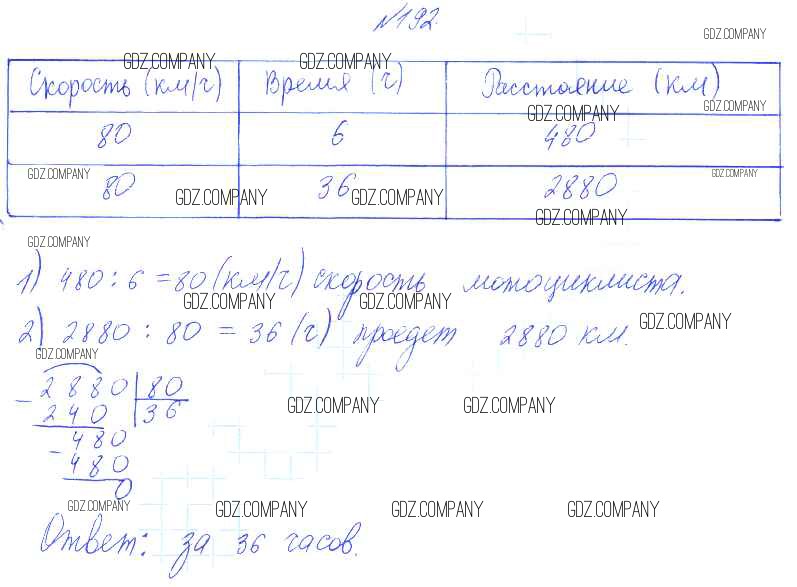 №192.
GDZ.COMPANY
GDZ.COMPANY GDZ.COMPANY
Скорость (км/ч) Время (ч) Расстояние (км)
GDZ.COMPANY GDZ.COMPANY
80 6 480
GDZ.COMPANY GDZ.COMPANY
80 36 2880
GDZ.COMPANY GDZ.COMPANY
GDZ.COMPANY
GDZ.COMPANY
1) 480 : 6 = 80 (км/ч) скорость мотоциклиста.
GDZ.COMPANY GDZ.COMPANY
2) 2880 : 80 = 36 (ч) проедет 2880 км.
GDZ.COMPANY
GDZ.COMPANY
- 2880 80
240 36
GDZ.COMPANY GDZ.COMPANY
- 480
480
0
GDZ.COMPANY GDZ.COMPANY GDZ.COMPANY GDZ.COMPANY
Ответ: за 36 часов.